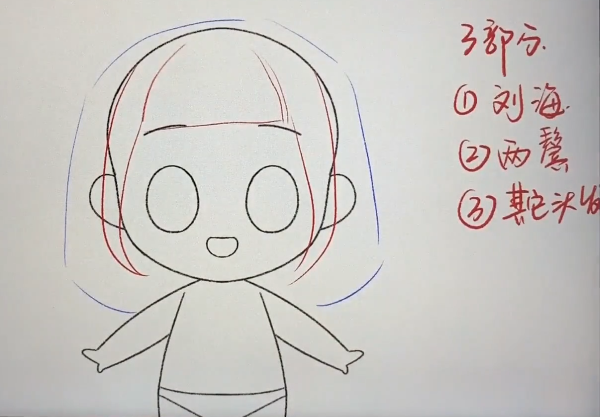 3部分
① 刘海
② 两鬓
③ 其它头发